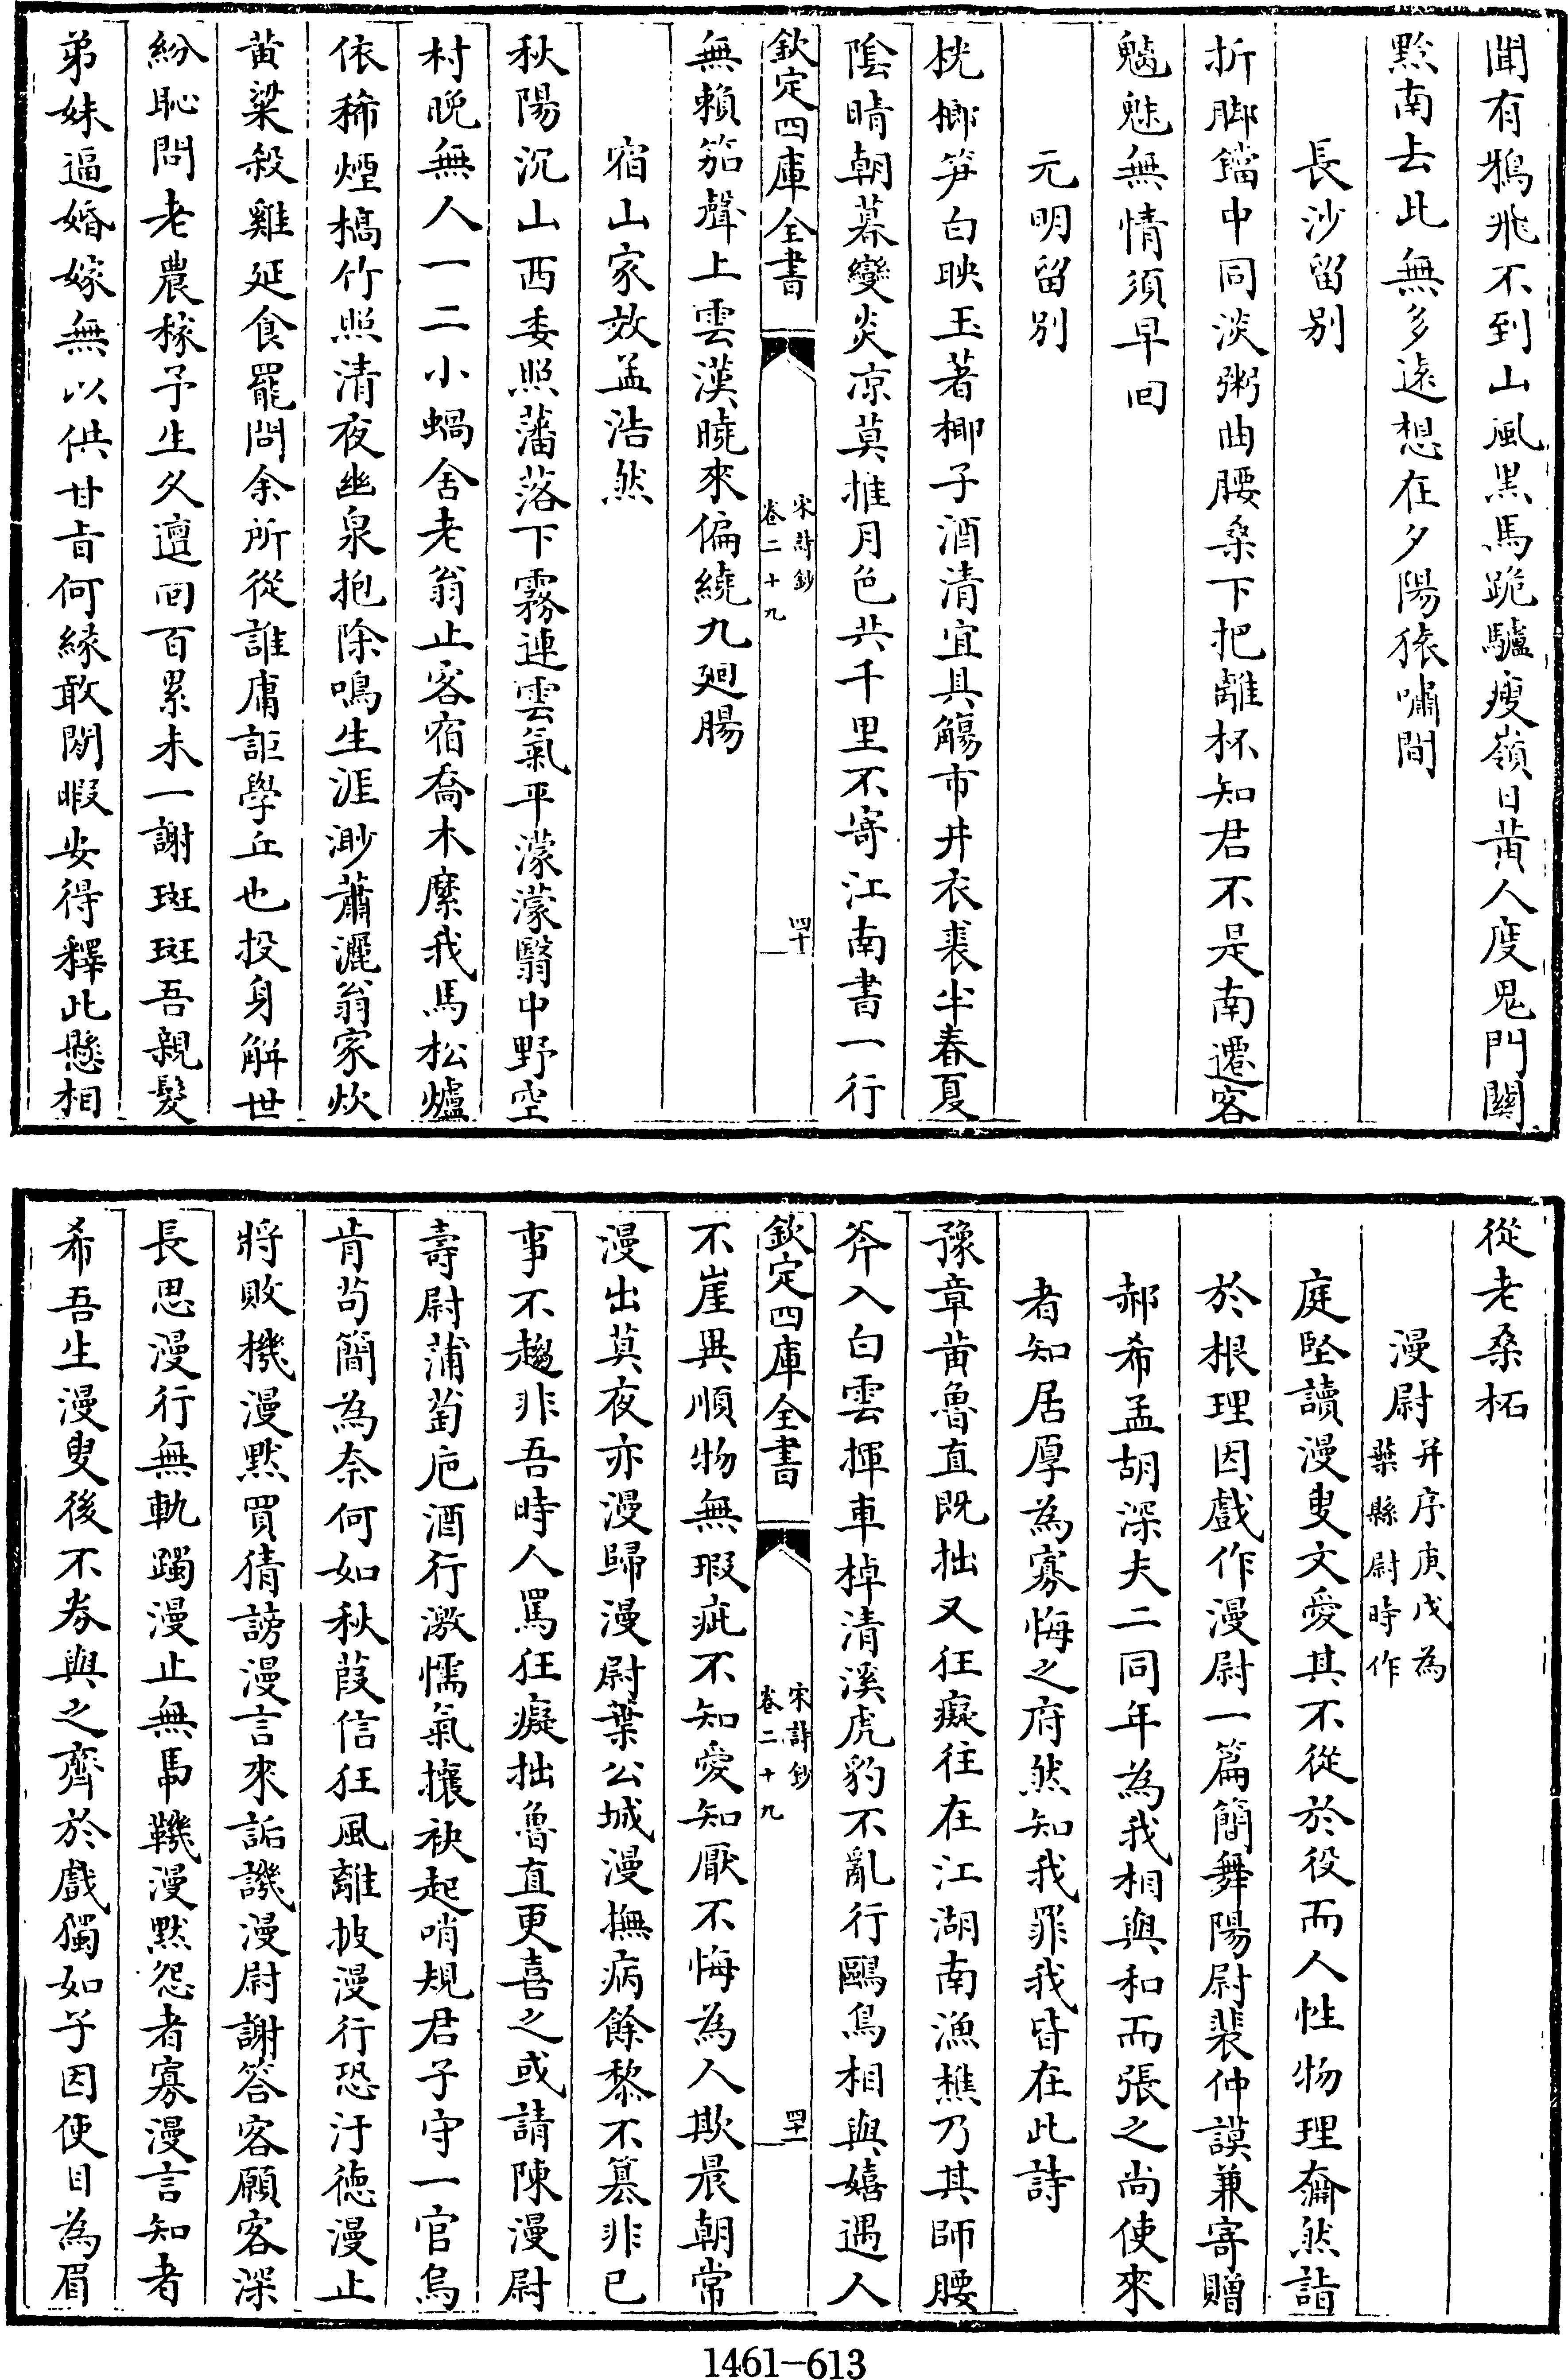 聞有鴉飛不到山風黑馬跪驢瘦嶺日黃人度鬼門關
黔南去此無多遠想在夕陽猿嘯間
長沙留别
折脚鐺中同淡粥曲腰桑下把離杯知君不是南遷客
魑魅無情須早回
元明留别
桄榔笋白映玉著椰子酒清宜具觴市井衣裘半春夏
陰晴朝暮變炎凉莫推月色共千里不寄江南書一行
欽定四庫全書
宋詩鈔
卷二十九
四十
無賴笳聲上雲漢曉來偏繞九廻腸
宿山家效孟浩然
秋陽沉山西委照藩落下霧連雲氣平濛濛翳中野空
村晚無人一二小蝸舍老翁止客宿喬木縻我馬松爐
依稀煙槁竹照清夜幽泉抱除鳴生涯渺蕭灑翁家炊
黃粱殺雞延食罷問余所從誰庸詎學丘也投身觧世
紛恥問老農稼予生久邅回百累未一謝斑斑吾親髮
弟妹逼婚嫁無以供甘旨何縁敢閒暇安得釋此懸相
從老桑柘
漫尉
并序庚戌為
葉縣尉時作
庭堅讀漫叟文愛其不從於役而人性物理奫然詣
於根理因戲作漫尉一篇簡舞陽尉裴仲謨兼寄贈
郝希孟胡深夫二同年為我相與和而張之尚使來
者知居厚為寡悔之府然知我罪我皆在此詩
豫章黃魯直既拙又狂癡往在江湖南漁樵乃其師腰
斧入白雲揮車棹清溪虎豹不亂行鷗鳥相與嬉遇人
欽定四庫全書
宋詩鈔
卷二十九
四十一
不崖異順物無瑕疵不知愛知厭不悔為人欺晨朝常
漫出莫夜亦漫歸漫尉葉公城漫撫病餘黎不篡非已
事不趨非吾時人罵狂癡拙魯直更喜之或請陳漫尉
壽尉蒲萄巵酒行激懦氣攘袂起哨規君子守一官烏
肯苟簡為奈何如秋葭信狂風離披漫行恐汙徳漫止
將敗機漫黙買猜謗漫言來詬譏漫尉謝答客願客深
長思漫行無軌躅漫止無馽鞿漫黙怨者寡漫言知者
希吾生漫叟後不券與之齊於戲獨如子因使目為眉
1461-613